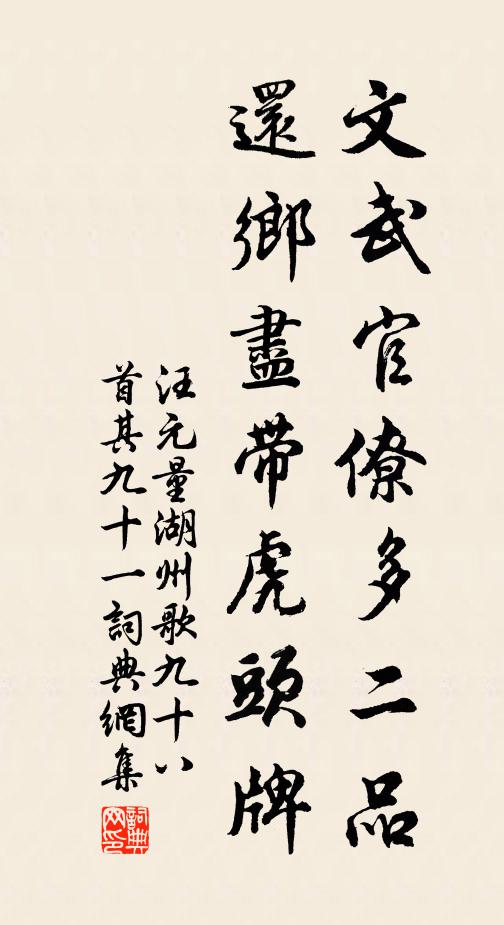 文武官僚多二品
還鄉盡带虎頭牌
汪元量湖州歌九十八
首其九十一詞典網集
詞典
网印